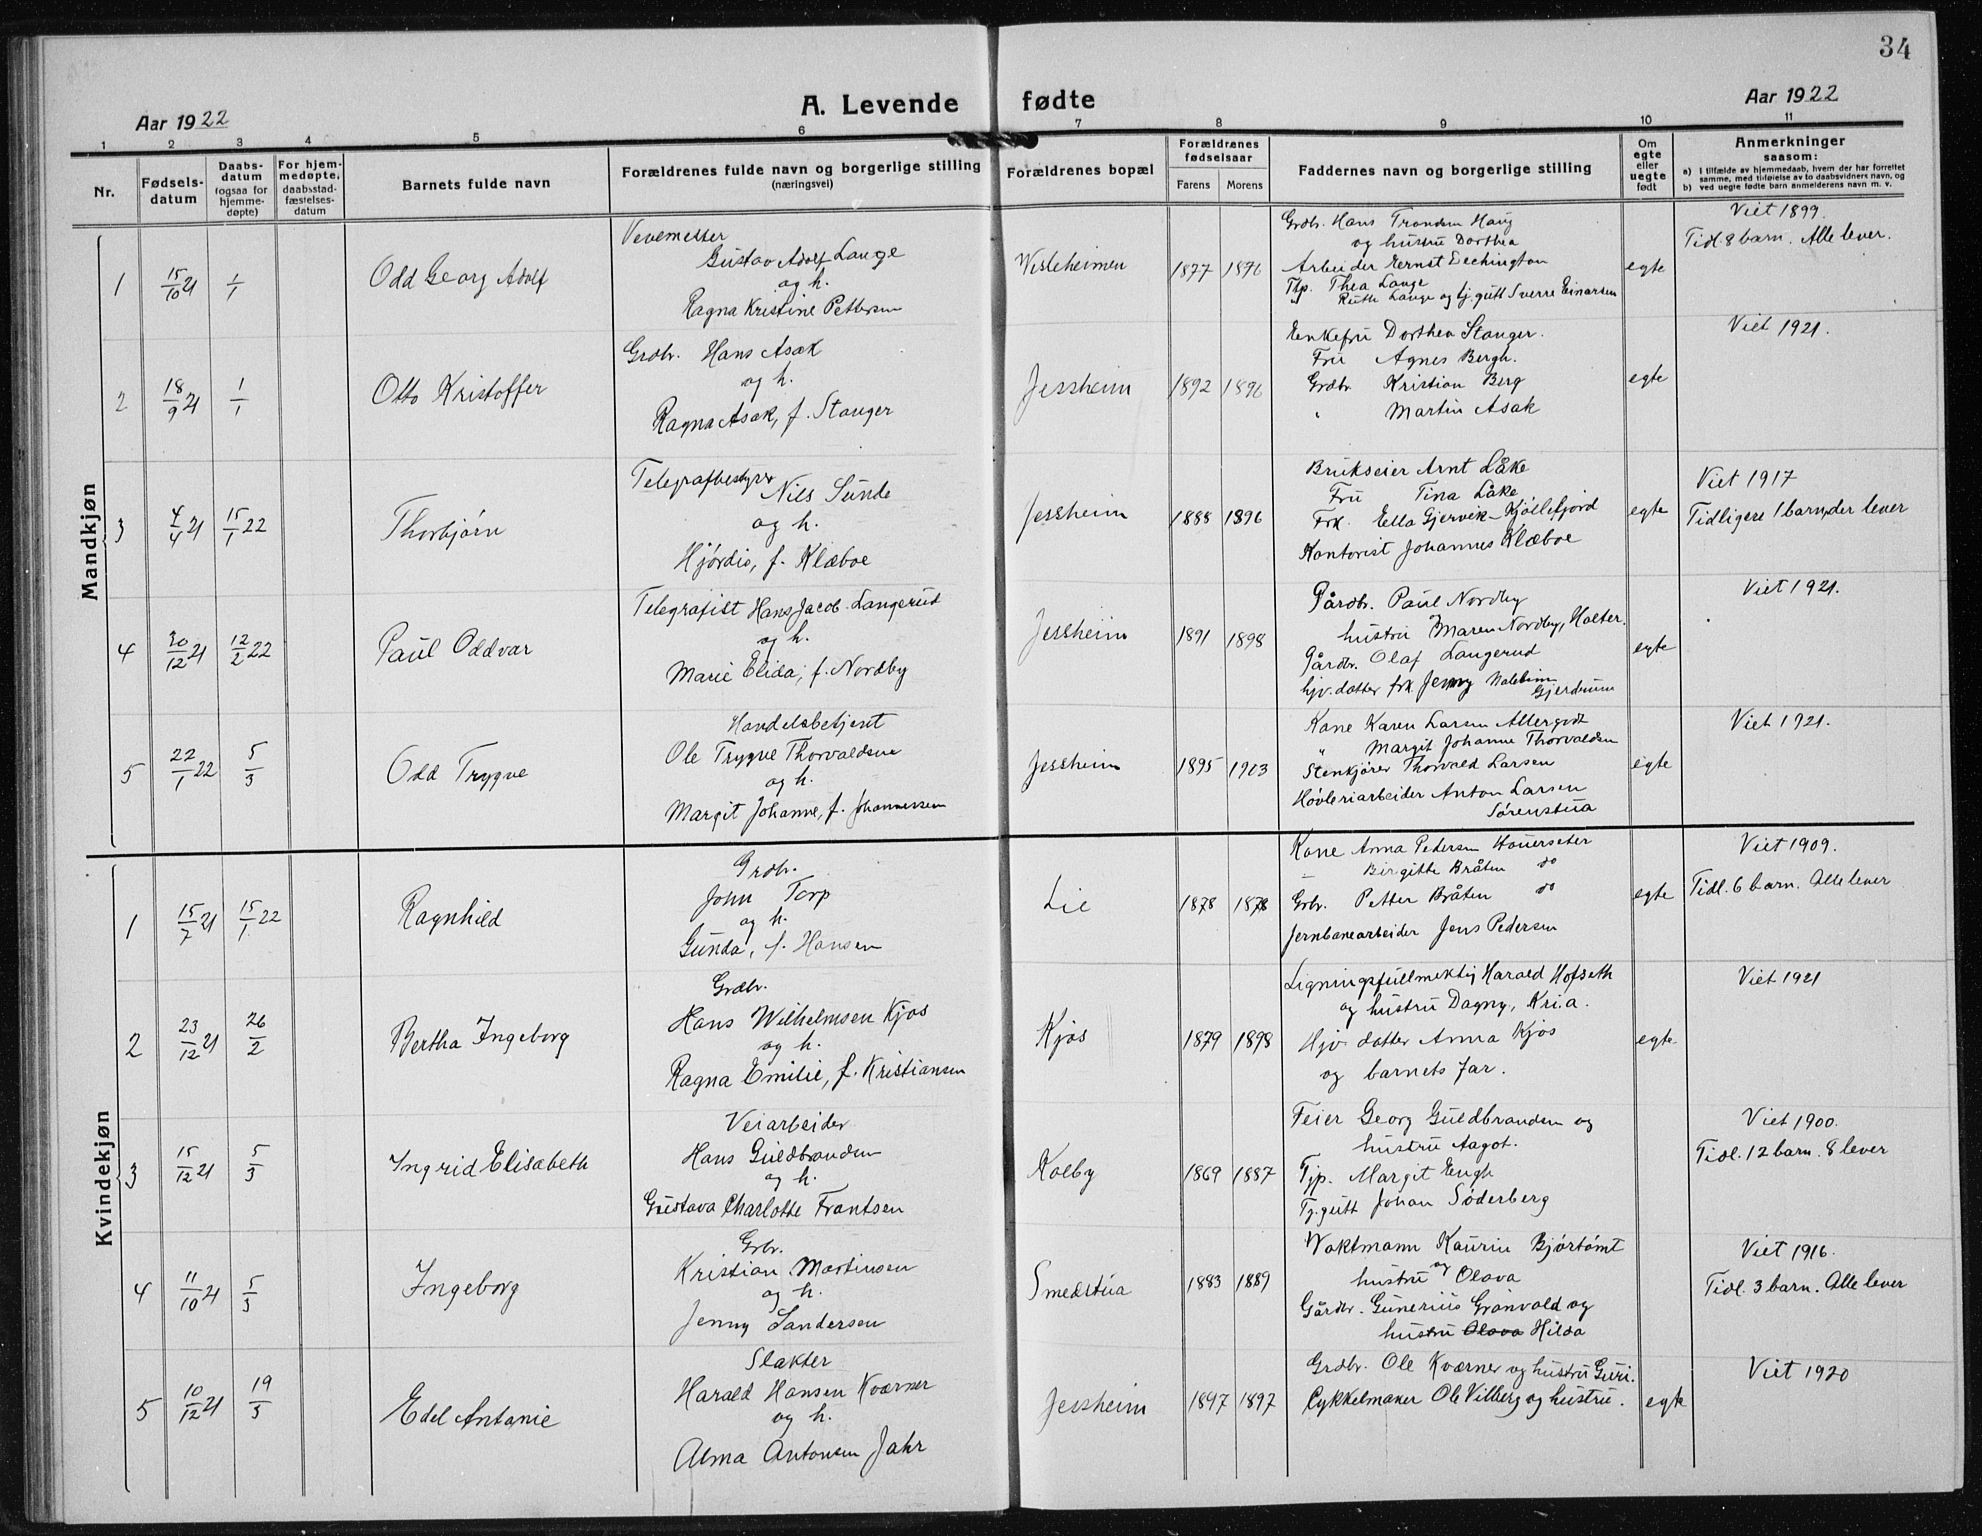 34
Aar 1922
A. Levende fødte
Aar 1922
1 2 3 4 5 6 7 8 9 10 11
Nr.
Fødsels-
datum
Daabs-
datum
(ogsaa for
hjemme-
døpte)
For hjem-
medøpte,
daabsstad-
fæstelses-
datum
Barnets fulde navn
Forældrenes fulde navn og borgerlige stilling
(næringsvei)
Forældrenes bopæl
Forældrenes
fødselsaar
Farens Morens
Faddernes navn og borgerlige stilling
Om
egte
eller
uegte
født
Anmerkninger
saasom:
a) I tilfælde av hjemmedaab, hvem der har forrettet
samme, med tilføielse av to daabsvidners navn, og
b) ved uegte fødte barn anmelderens navn m. v.
Mandkjøn
1
15/10 21
1/1
Odd Georg Adolf
Gustav Adolf Lange
og h.
Ragna Kristine Pettersen
1877 1896
Grdbr. Hans Trondsen Haug
og hustru Dorthea
Arbeider Ernst
Tjp. Thea Lange
" Ruth Lange og tj.gutt Sverre Einarsen
egte
Viet 1899.
Tidl. 8 barn. Alle lever.
2
18/9 21
1/1
Otto Kristoffer
Grdbr. Hans Asak
og h.
Ragna Asak, f. Stanger
Jessheim
1892 1896
Enkefru Dorthea Stanger.
Fru Agnes Bergh.
Grdbr Kristian Berg
" Martin Asak
egte
Viet 1921.
3
4/4 21
15/1 22
Thorbjørn
Telegrafbestyrer
Nils Sunde
og h.
Hjørdis, f. Klæboe
Jessheim
1888 1896
Brukseier Arnt Låke
Fru Tina Låke
Frk. Ella Gjervik - Kjøllefjord
Kontorist Johannes Klæboe
egte
Viet 1917
Tidligere 1 barn, der lever
4
30/12 21
12/2 22
Paul Oddvar
Telegrafist Hans Jacob Langerud
og h.
Marie Elida, f. Nordby
Jessheim
1891 1898
Gårdbr. Paul Nordby
hustru Maren Nordby, Holter.
Gårdbr. Olaf Langerud
hjv. datter frk. Jenny
Gjerdrum
egte
Viet 1921.
5
22/1 22
5/3
Odd Trygve
Handelsbetjent
Ole Trygve Thorvaldsen
og h.
Margit Johanne, f. Johannessen
Jessheim
1895 1903
Kone Karen Larsen Allergodt
" Margit Johanne Thorvaldsen
Stenkjører Thorvald Larsen
Høvleriarbeider Anton Larsen
Sørenstua
egte
Viet 1921.
Kvindekjøn
1
15/7 21
15/1 22
Ragnhild
Grdbr.
John Torp
og h.
Gunda, f. Hansen
Lie
1878 1878
Kone Anna Pedersen Hauerseter
Birgitte Bråten do
Grbr. Petter Bråten do
Jernbanearbeider Jens Pedersen
egte
Viet 1909.
Tidl. 6 barn. Alle lever
2
23/12 21
26/2
Bertha Ingeborg
Grdbr.
Hans Wilhelmsen Kjos
og h.
Ragna Emilie, f. Kristiansen
Kjos
1879 1898
Ligningsfullmektig Harald Hofseth
og hustru Dagny, Kria.
Hjv. datter Anna Kjos
og barnets far.
egte
Viet 1921
3
15/12 21
5/3
Ingrid Elisabeth
Veiarbeider
Hans Guldbrandsen
og h.
Gustava Charlotte Frantsen
Kolby
1869 1887
Feier Georg Guldbrandsen og
hustru Aagot.
Tjp. Margit Engh
Tj.gutt Johan Søderberg
Viet 1900.
Tidl. 12 barn. 8 lever
4
11/10 21
5/3
Ingeborg
Grbr.
Kristian Martinsen
og h.
Jenny Sandersen
Smedstua
1883 1889
Vaktmann Kaurin Bjørtomt
og
hustru Olava
Gårdbr. Gunerius Grønvold og
hustru Olava Hilda
Viet 1916.
Tidl. 3 barn. Alle lever
5
10/12 21
19/3
Edel Antonie
Slakter
Harald Hansen Kværner
og h.
Alma Antonsen Jahr
Jessheim
1897 1897
Grdbr. Ole Kværner og hustru Guri.
Cykkelmaker Ole Vilberg og hustru.
egte
Viet 1920